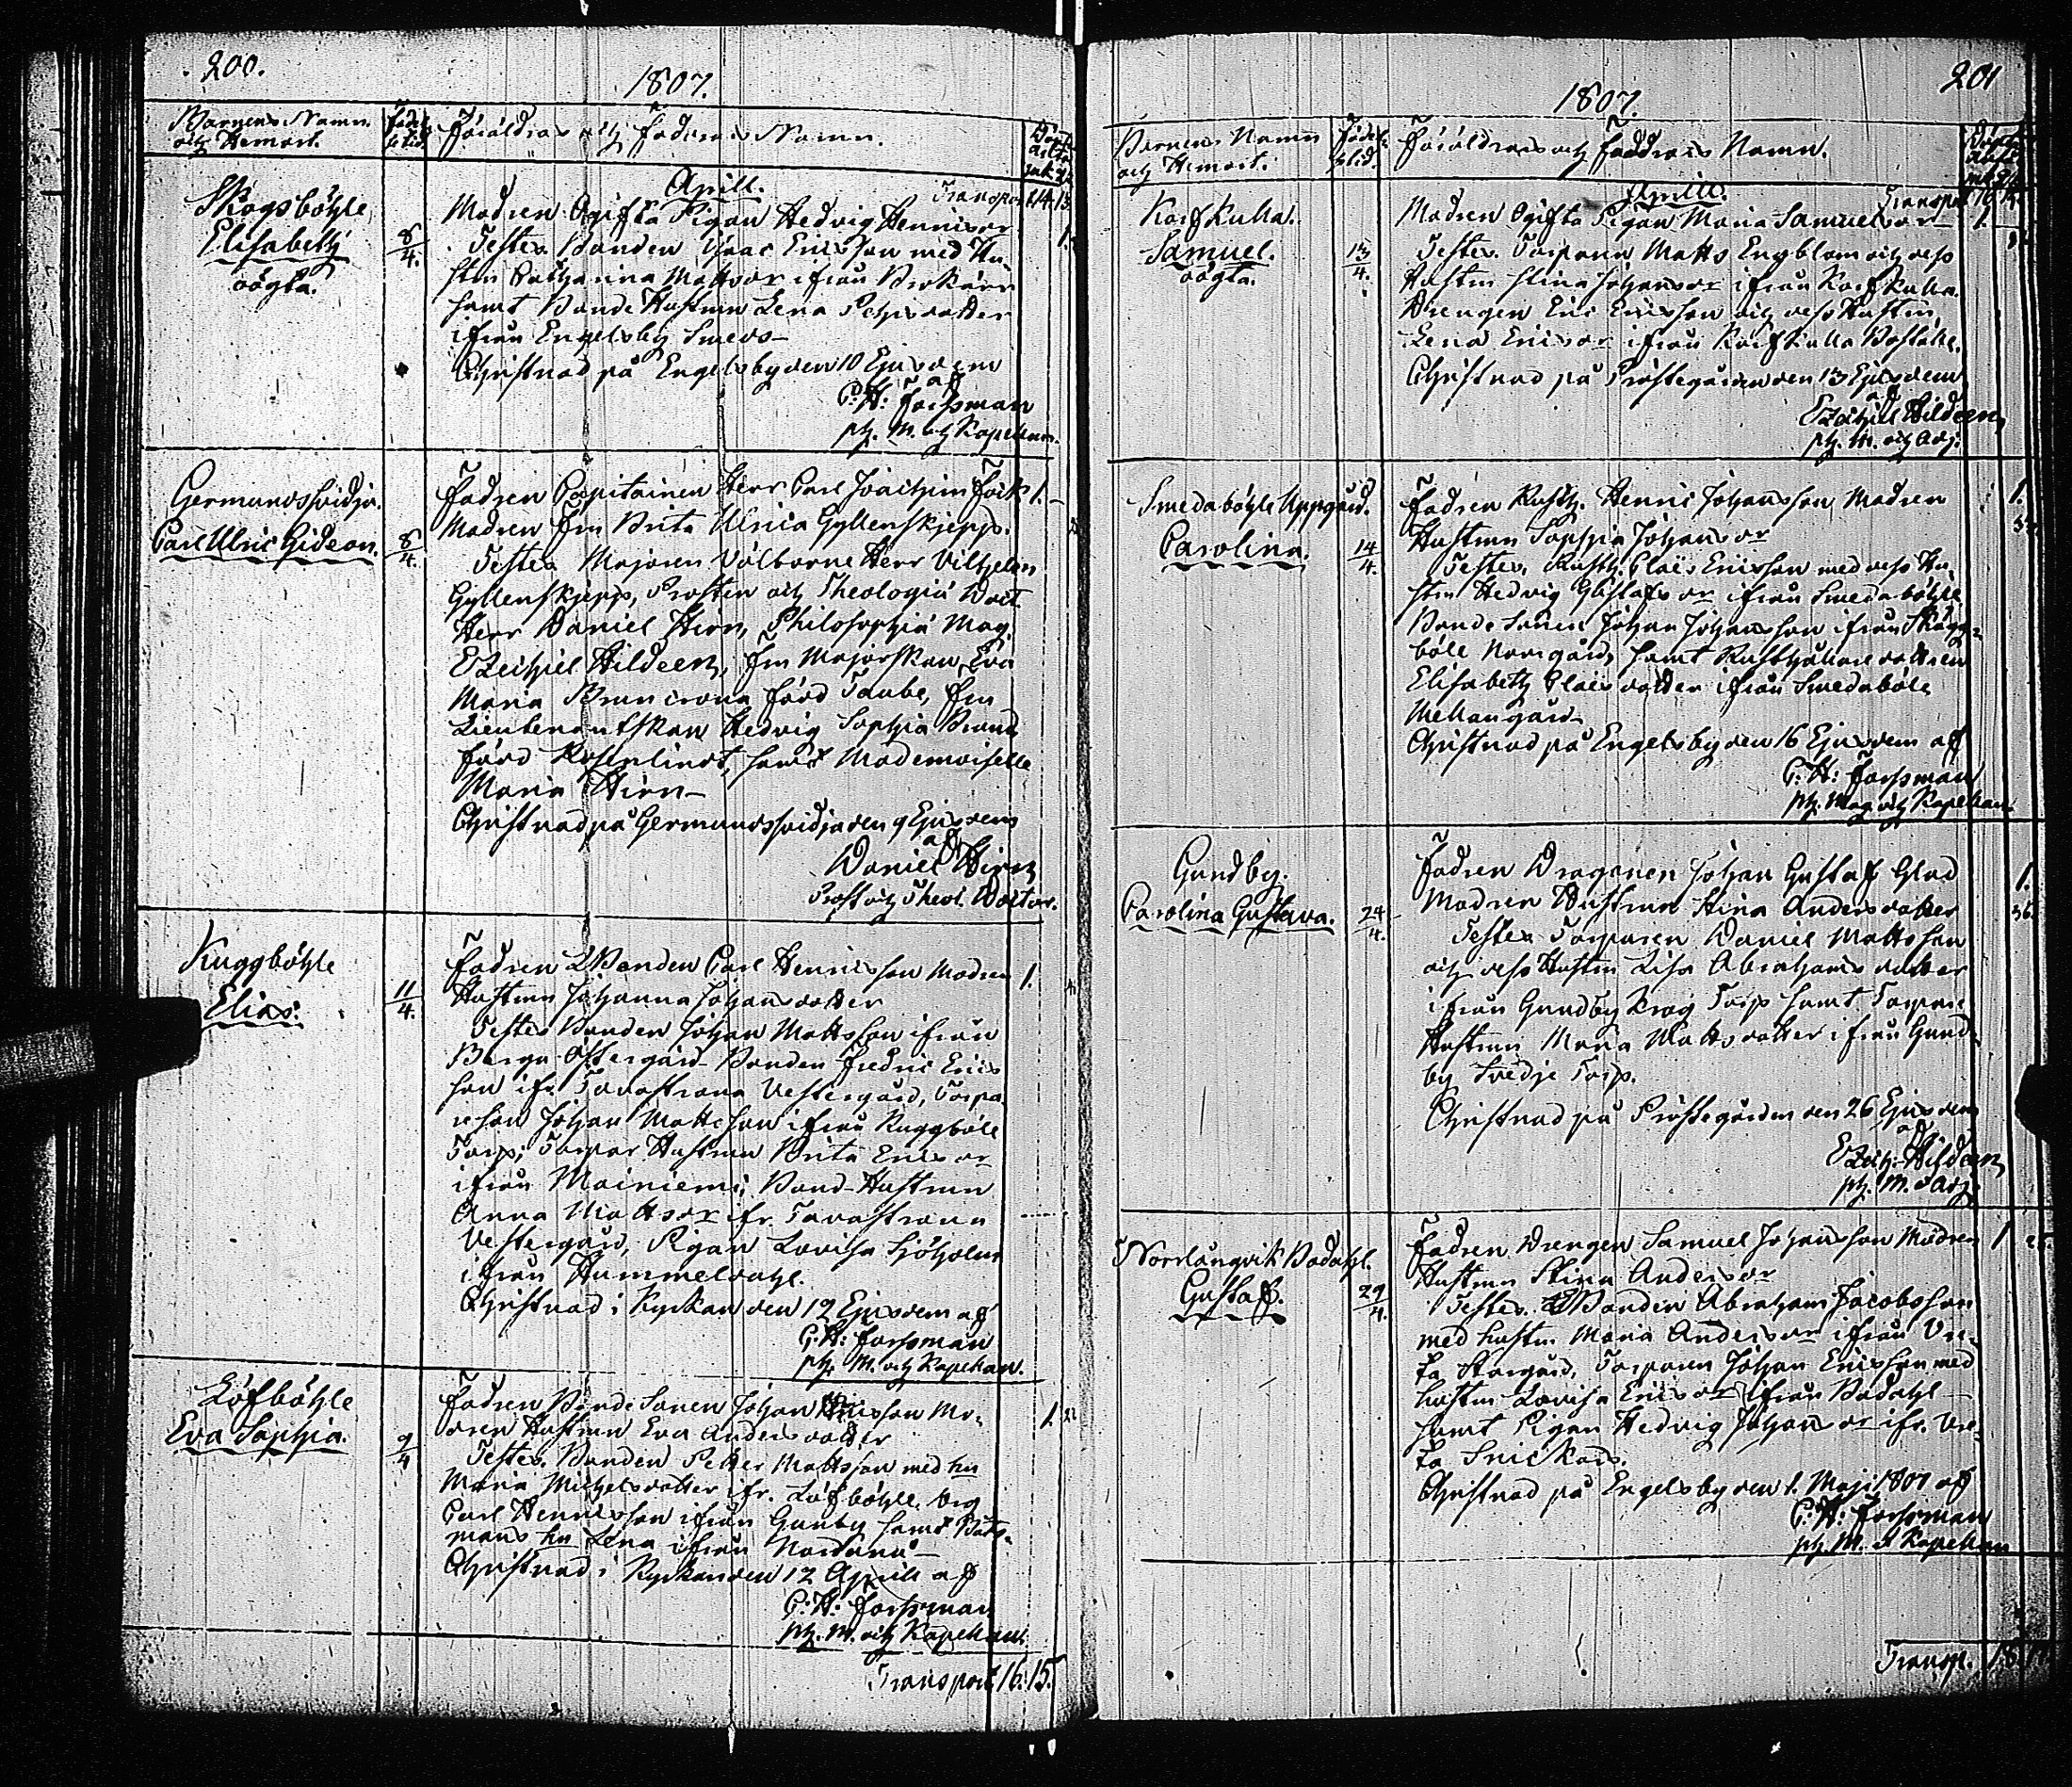 200.
1807.
Barnens Namn
och Hemort.
Födelse tid.
Föräldras och Faddrars Namn.
Aprill.
Transport 14. 13.
Skogsböhle
Elisabeth
oägta.
8/4.
Modren Ogifta Pigan Hedvig Henricsdr
Testes. Bonden Isaac Ericsson med Hu-
strun Catharina Mattsdr ifrån Brokärr
samt Bonde Hustrun Lena Petersdotter
ifrån Engelsby Smeds
Christnad på Engelsby den 10 Ejusdem
af
C: H: Forssman
ph. M. och Kapellan.
Germundssvidja.
Carl Ulric Gideon.
8/4.
Fadren Capitainen Herr Carl Joachim Fock 1.
Modren Fru Brita Ulrica Gyllenskjepp.
Testes Majoren Välborne Herr Vilhelm
Gyllenskjepp, Prosten och Theologiæ Doct.
Herr Daniel Hirn, Philosophiæ Mag.
Ezechiel Hildeen, Fru Majorskan Eva
Maria Bruncrona född Taube, Fru
Lieutenantskan Hedvig Sophia Brand
född Rosenlindt, samt Mademoiselle
Maria Hirn
Christnad på Germundssvidja den 9 Ejusdem
af
Daniel Hirn
Prost och Theol. Doctor.
Kuggböhle
Elias.
11/4.
Fadren Bonden Carl Henricsson Modren 1.
Hustrun Johanna Johansdotter
Testes Bonden Johan Mattsson ifrån
Berga Östergård Bonden Fredric Erics
son ifr. Tavastrana Vestergård, Torpa
reson Johan Mattsson ifrån Kuggböle
Torp, Torpar Hustrun Brita Ericsdr
ifrån Mainiemi, Bond-Hustrun
Anna Mattsdr ifr. Tavastrana
Vestergård, Pigan Lovisa Sjöholm
ifrån Hummeldahl.
Christnad i Kyrkan den 12 Ejusdem af
C: H: Forssman
ph. M. och Kapellan.
Löfböhle
Eva Sophia.
9/4
Fadren Bonde Sonen Johan Ericsson Mo- 1. 22
dren Hustrun Eva Andersdotter
Testes. Bonden Petter Mattsson med hu
Maria Michelsdotter ifr. Löfböhle. Drg
Carl Henricsson ifrån Gunby samt Båts-
mans hu Lena ifrån Nordanå
Christnad i Kyrkan den 12 Aprill af
C: H: Forssman
ph. M. och Kapellan.
Transport 16. 15.
201
1807.
Barnens Namn
och Hemort.
Födelse tid.
Föräldrars och Faddrars Namn.
Aprill.
Transport 16. 15.
Karfkulla.
Samuel.
oägta.
13/4.
Modren Ogifta Pigan Maria Samuelsdr 1.
Testes. Torparen Matts Engblom och dess
Hustru Stina Johansdr ifrån Karfkulla.
Drengen Eric Ericsson och dess Hustru,
Lena Ericsdr ifrån Karfkulla Boställe.
Christnad på Prostegården den 13 Ejusdem
af
Ezechiel Hildeen,
ph. M. och Adj.
Smedaböhle Uppgård.
Carolina.
14/4.
Fadren Rusth. Henric Johansson Modren 1.
Hustrun Sophia Johansdr
Testes. Rusth. Claës Ericsson med dess Hu-
stru Hedvig Gustafsdr ifrån Smedaböhle,
Bonde Sonen Johan Johansson ifrån Skägg-
böle Norrgård, samt Rusthållare dottren
Elisabeth Claësdotter ifrån Smedaböle
Mellangård
Christnad på Engelsby den 16 Ejusdem af
C: H: Forssman
ph. Mag. och Kapellan
Gundby.
Carolina Gustava.
24/4.
Fadren Dragonen Johan Gustaf Glad 1.
Modren Hustrun Stina Andersdotter 36.
Testes Torparen Daniel Mattsson
och dess Hustru Lisa Abrahamsdotter
ifrån Gundby Krog Torp samt Torpare
Hustrun Maria Mattsdotter ifrån Gund-
by Svedje Torp.
Christnad på Prostegården den 26 Ejusdem
af
Ezech. Hildeen,
ph. M. o Adj.
Norrlångvik Badahl.
Gustaf.
29/4.
Fadren Drengen Samuel Johansson Modren 1
Hustrun Stina Andersdr
Testes. Bonden Abraham Jacobsson
med hustru Maria Andersdr ifrån Vre-
ta Storgård, Torparen Johan Ericsson med
hustru Lovisa Ericsdr ifrån Badahl
samt Pigan Hedvig Johansdr ifr. Vre-
ta Snickars.
Christnad på Engelsby den 1. Maji 1807 af
C: H: Forssman
ph. M. & Kapellan
Transp. 18. 17.